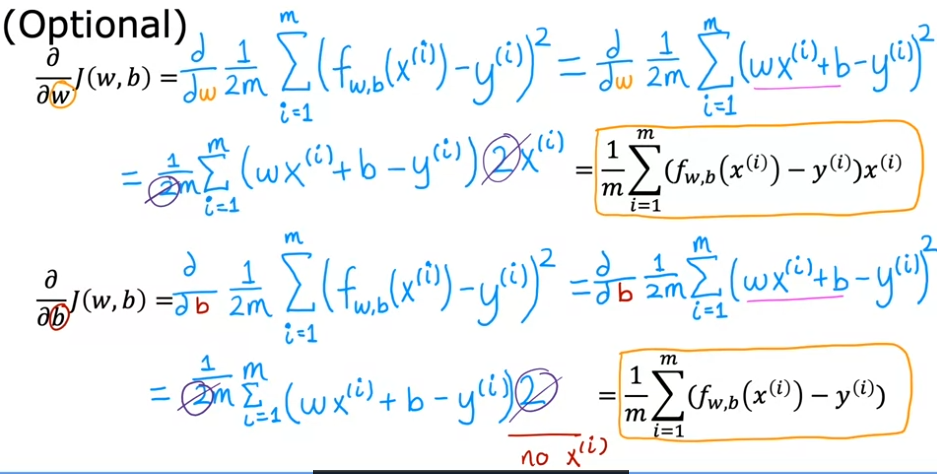 (Optional)
∂/∂w J(w,b) = ∂/∂w 1/2m ∑_{i=1}^{m} (f_{w,b}(x^{(i)}) − y^{(i)})² = ∂/∂w 1/2m ∑_{i=1}^{m} (wx^{(i)} + b − y^{(i)})²
= 1/2m ∑_{i=1}^{m} (wx^{(i)} + b − y^{(i)}) 2x^{(i)} = 1/m ∑_{i=1}^{m} (f_{w,b}(x^{(i)}) − y^{(i)})x^{(i)}
∂/∂b J(w,b) = ∂/∂b 1/2m ∑_{i=1}^{m} (f_{w,b}(x^{(i)}) − y^{(i)})² = ∂/∂b 1/2m ∑_{i=1}^{m} (wx^{(i)} + b − y^{(i)})²
= 1/2m ∑_{i=1}^{m} (wx^{(i)} + b − y^{(i)}) 2 = 1/m ∑_{i=1}^{m} (f_{w,b}(x^{(i)}) − y^{(i)})
no x^{(i)}